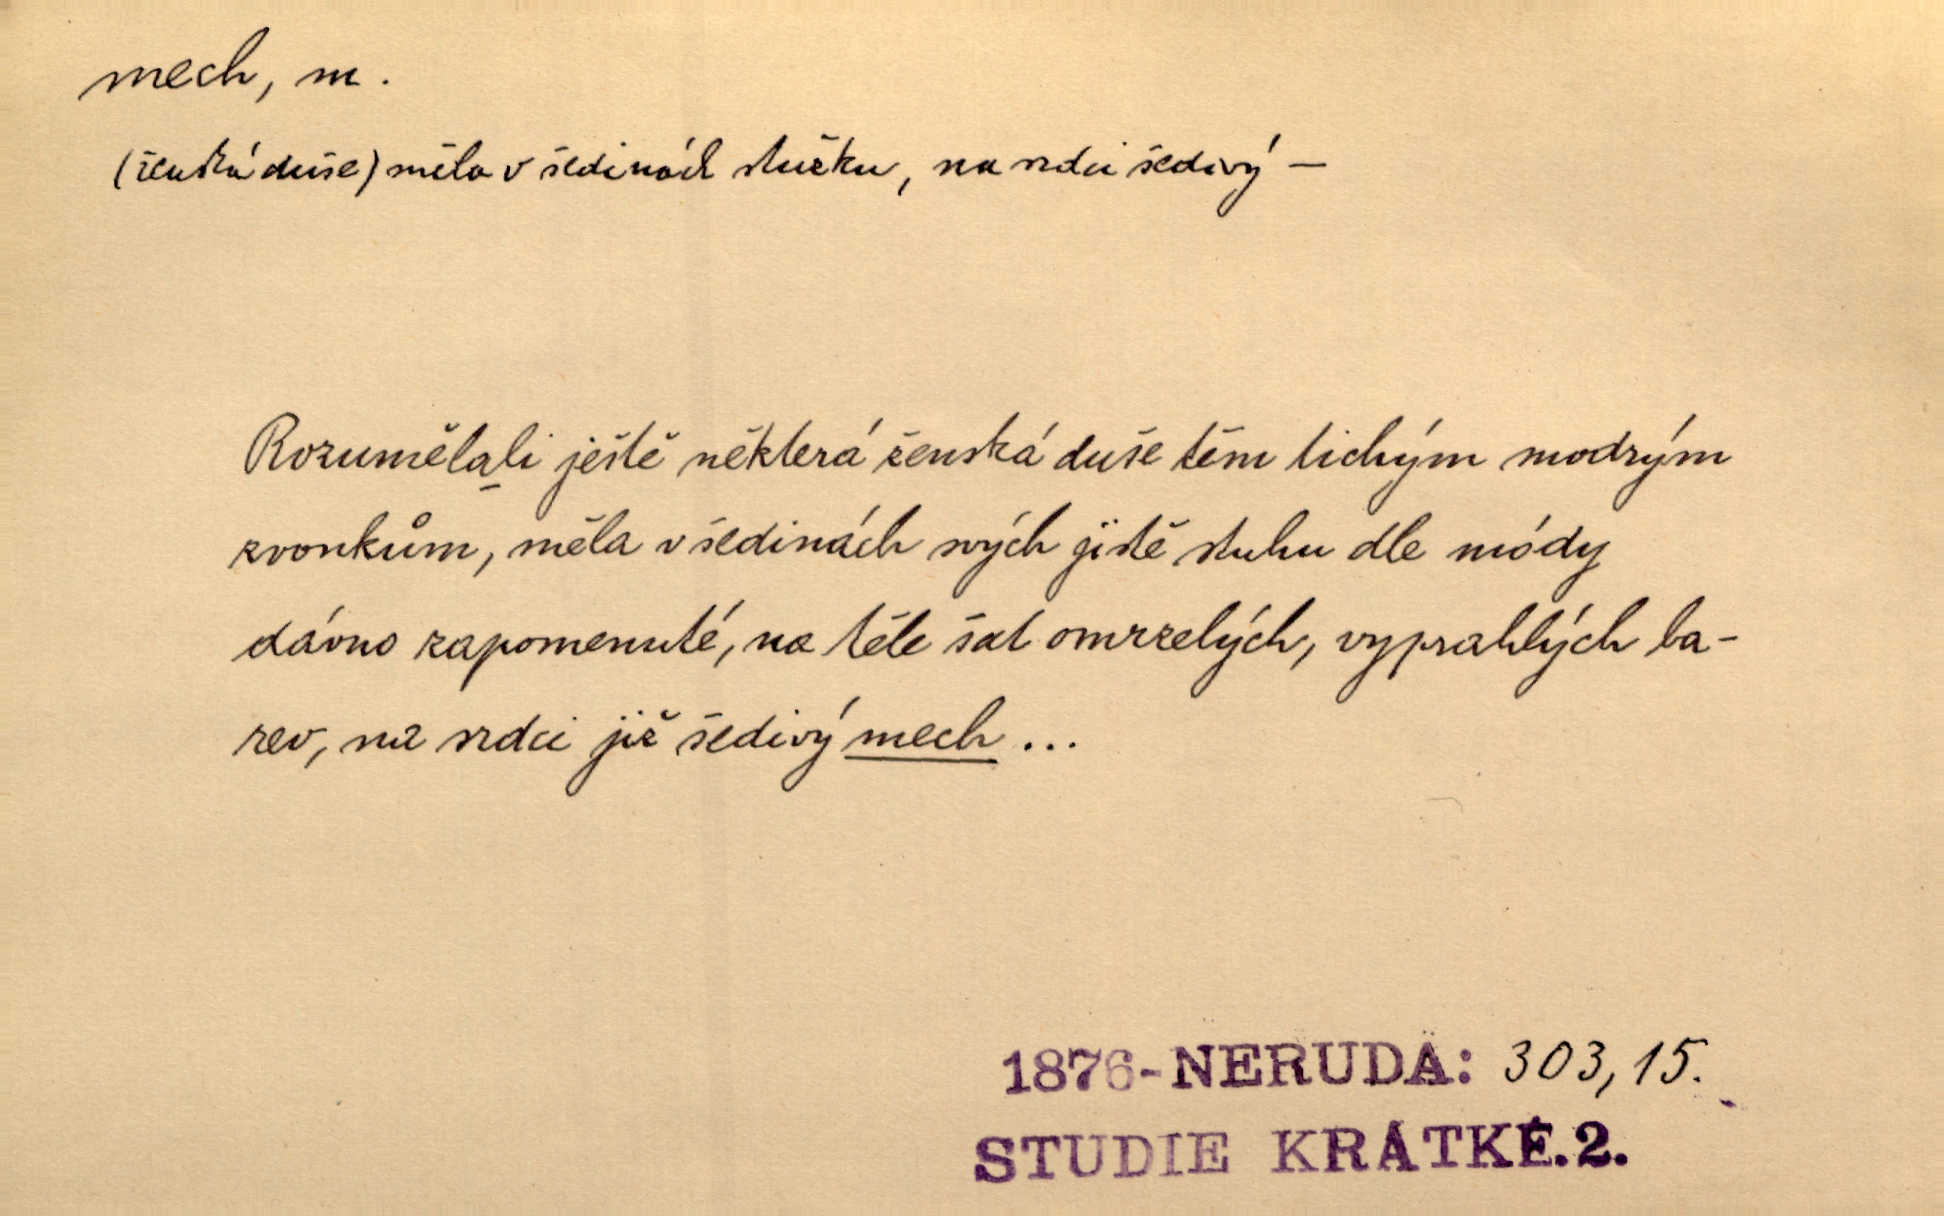 mech, m.
(ženská duše) měla v šedinách stužku, na srdci šedivý —
Rozumělali ještě některá ženská duše těm tichým modrým
zvonkům, měla v šedinách svých jistě stuhu dle módy
dávno zapomenuté, na těle šat omrzelých, vyprahlých ba-
rev, na srdci již šedivý mech ...
1876-NERUDA: 303,15.
STUDIE KRÁTKÉ.2.